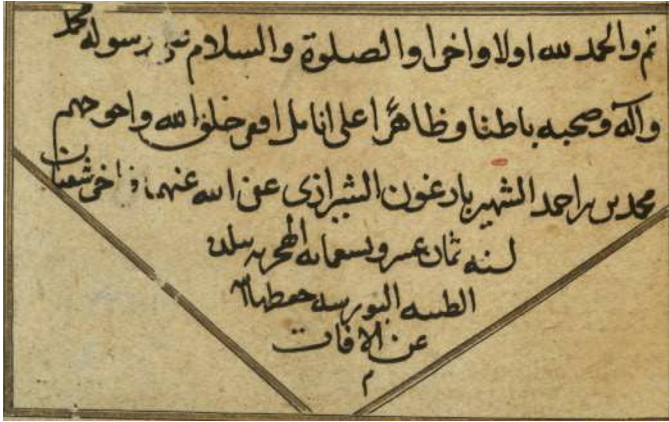 تم والحمد لله اولا واخرا والصلوة والسلام رسوله محمد
واله وصحبه باطنا وظاهرا على انامل افقر خلق الله واحوجهم
محمد بن احمد الشهير بارغون الشيرازى عفى الله عنهما اخر شعبان
لسنه ثمان عسر وسعمائه الهجريه ببلده
الطيبه البورسه حفظها الله
عن الافات
م